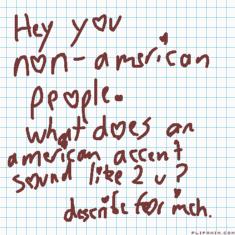 Hey you
non-american
people.
what does an
american accent
sound like 2 u?
describe for meh.
FLIPANIM.COM